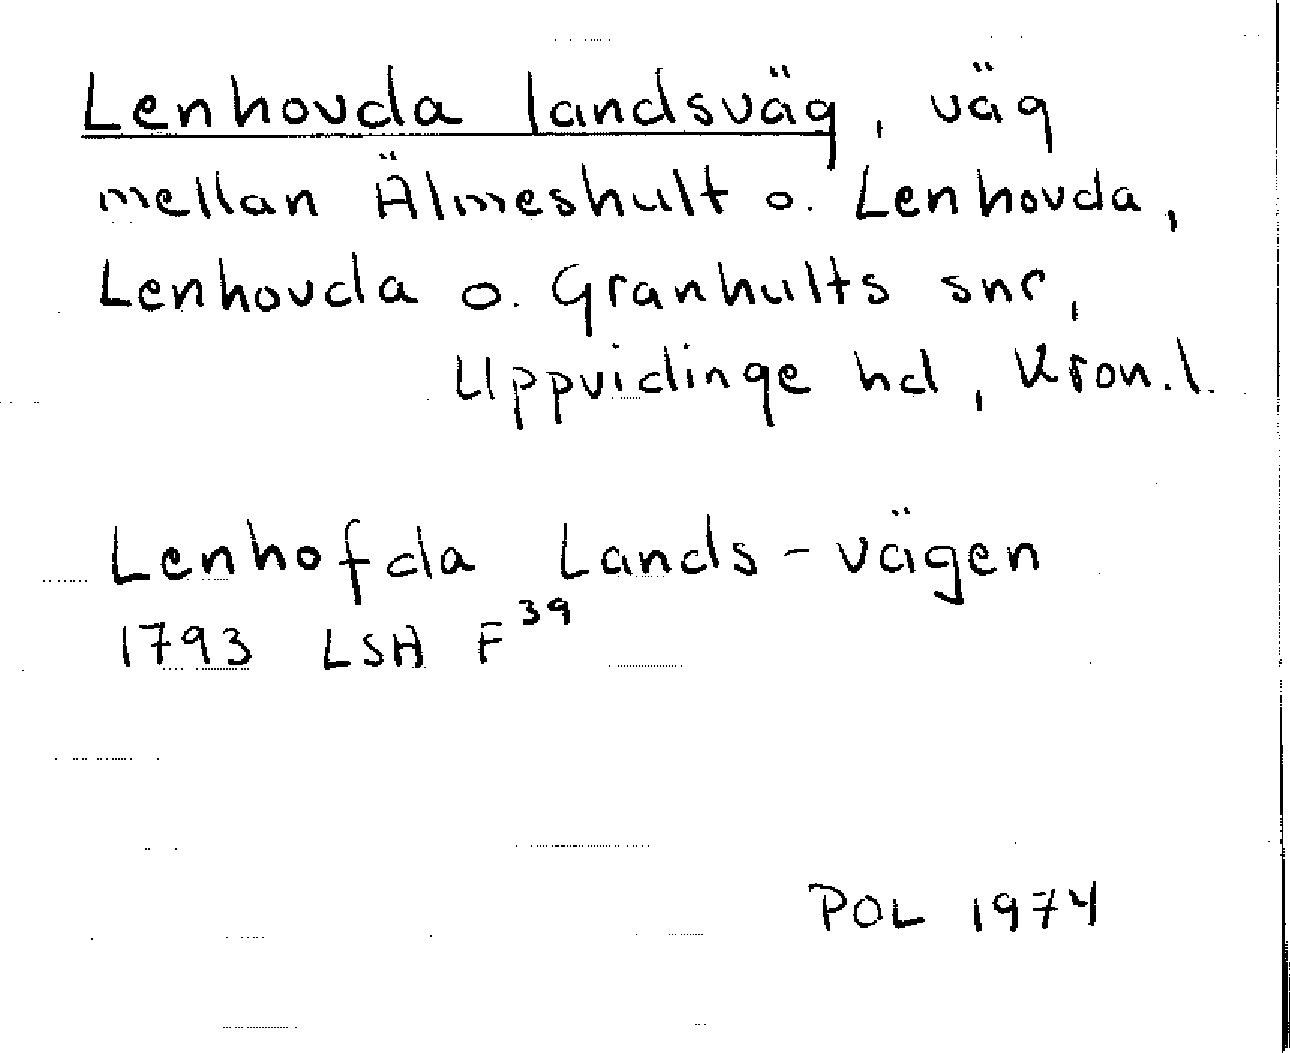 Lenhovda landsväg, väg
mellan Älmeshult o. Lenhovda,
Lenhovda o. Granhults snr,
Uppvidinge hd, Kron.l.
Lenhofda Lands-vägen
1793 LSH F39
POL 1974